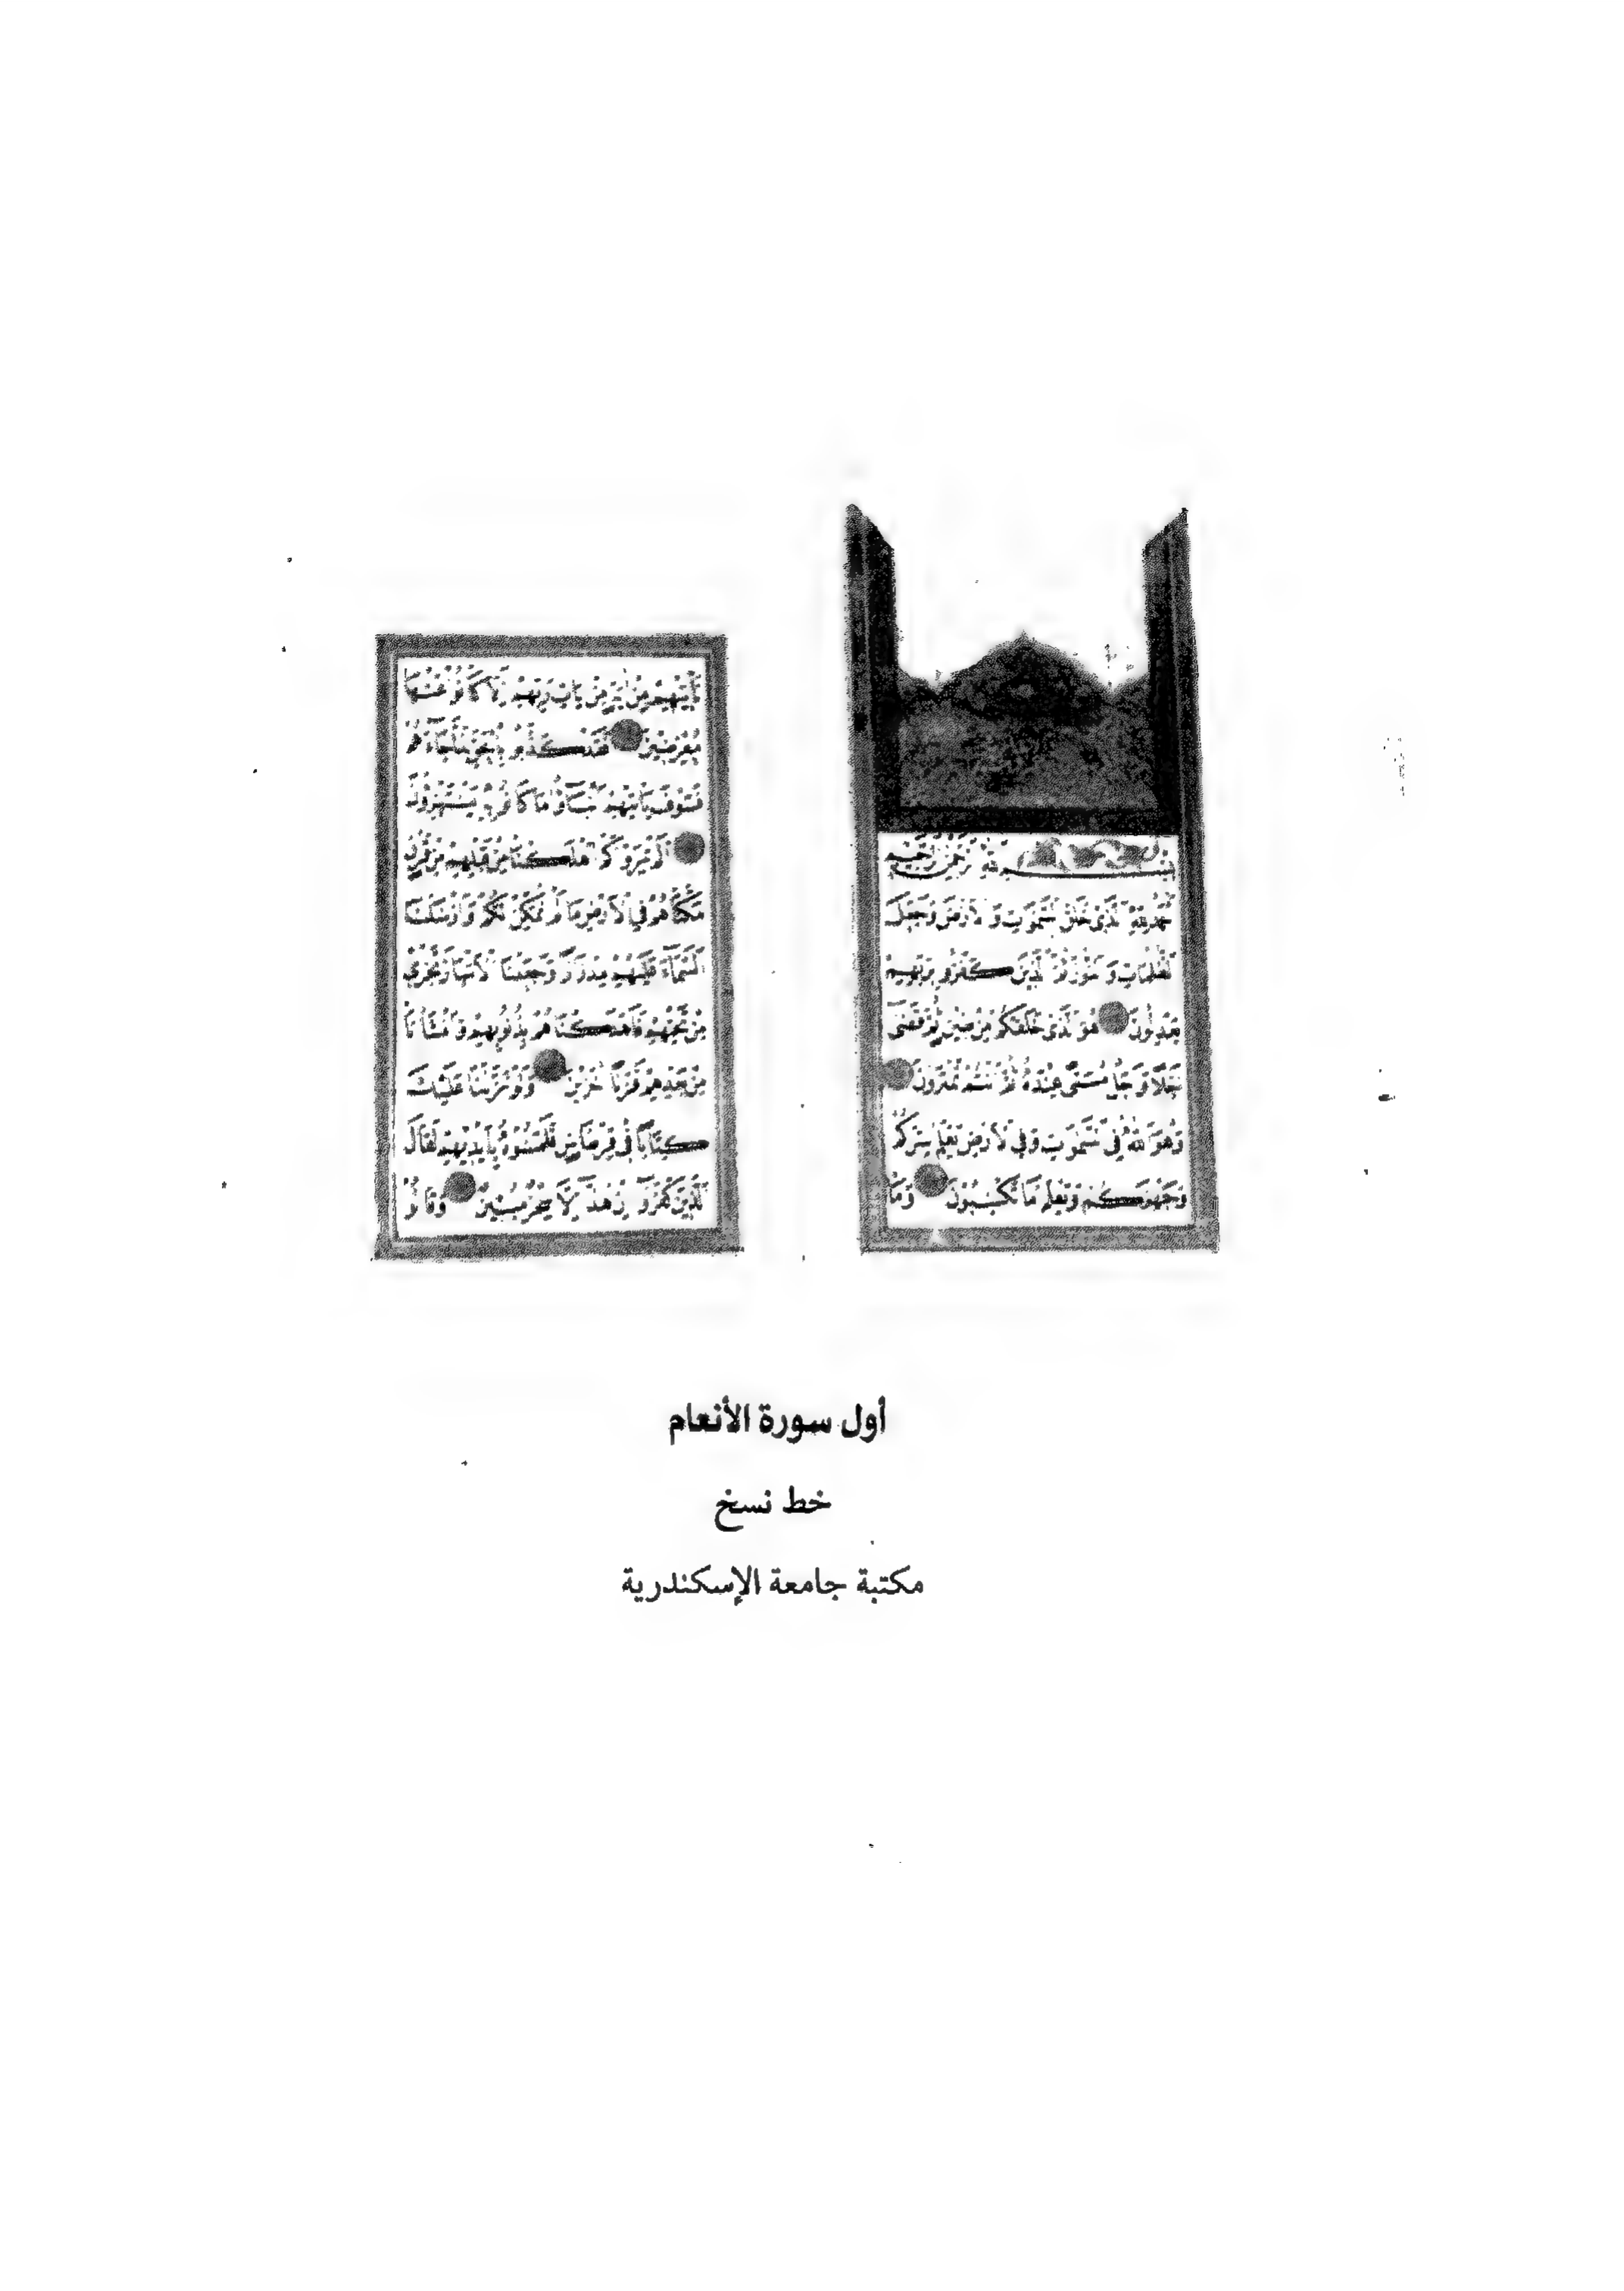 بسم الله الرحمن الرحيم
الحمد لله الذي خلق السموات والارض وجعل
الظلمات والنور ثم الذين كفروا بربهم
يعدلون هو الذي خلقكم من طين ثم قضى
اجلا واجل مسمى عنده ثم انتم تمترون
وهو الله في السموات وفي الارض يعلم سركم
وجهركم ويعلم ما تكسبون وما
تأتيهم من اية من ايات ربهم الا كانوا عنها
معرضين فقد كذبوا بالحق لما جاءهم
فسوف يأتيهم انبؤا ما كانوا به يستهزؤن
الم يروا كم اهلكنا من قبلهم من قرن
مكناهم في الارض ما لم نمكن لكم وارسلنا
السماء عليهم مدرارا وجعلنا الانهار تجري
من تحتهم فاهلكناهم بذنوبهم وانشأنا
من بعدهم قرنا اخرين ولو نزلنا عليك
كتابا في قرطاس فلمسوه بأيديهم لقال
الذين كفروا ان هذا الا سحر مبين وقالوا
أول سورة الأنعام
خط نسخ
مكتبة جامعة الإسكندرية